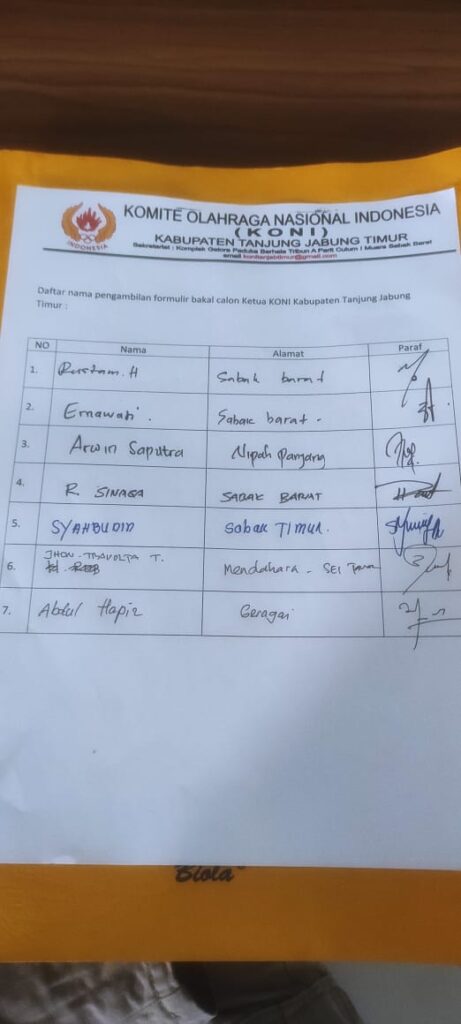 KOMITE OLAHRAGA NASIONAL INDONESIA
(KONI)
KABUPATEN TANJUNG JABUNG TIMUR
Sekretariat : Komplek Gelora Paduka Berhala Tribun A Parit Culum I Muara Sabak Barat
email konitanjabtimur@gmail.com
INDONESIA
Daftar nama pengambilan formulir bakal calon Ketua KONI Kabupaten Tanjung Jabung
Timur :
NO Nama Alamat Paraf
1. Rustam. H Sabak barat
2. Ernawati. Sabak barat.
3. Arwin Saputra Nipah Panjang
4. R. SINAGA SABAK BARAT
5. SYAHBUDIN Sabak TIMUR.
6. JHON TRAVOLTA T. Mendahara - SEI
7. Abdul Hapiz Geragai
Biola